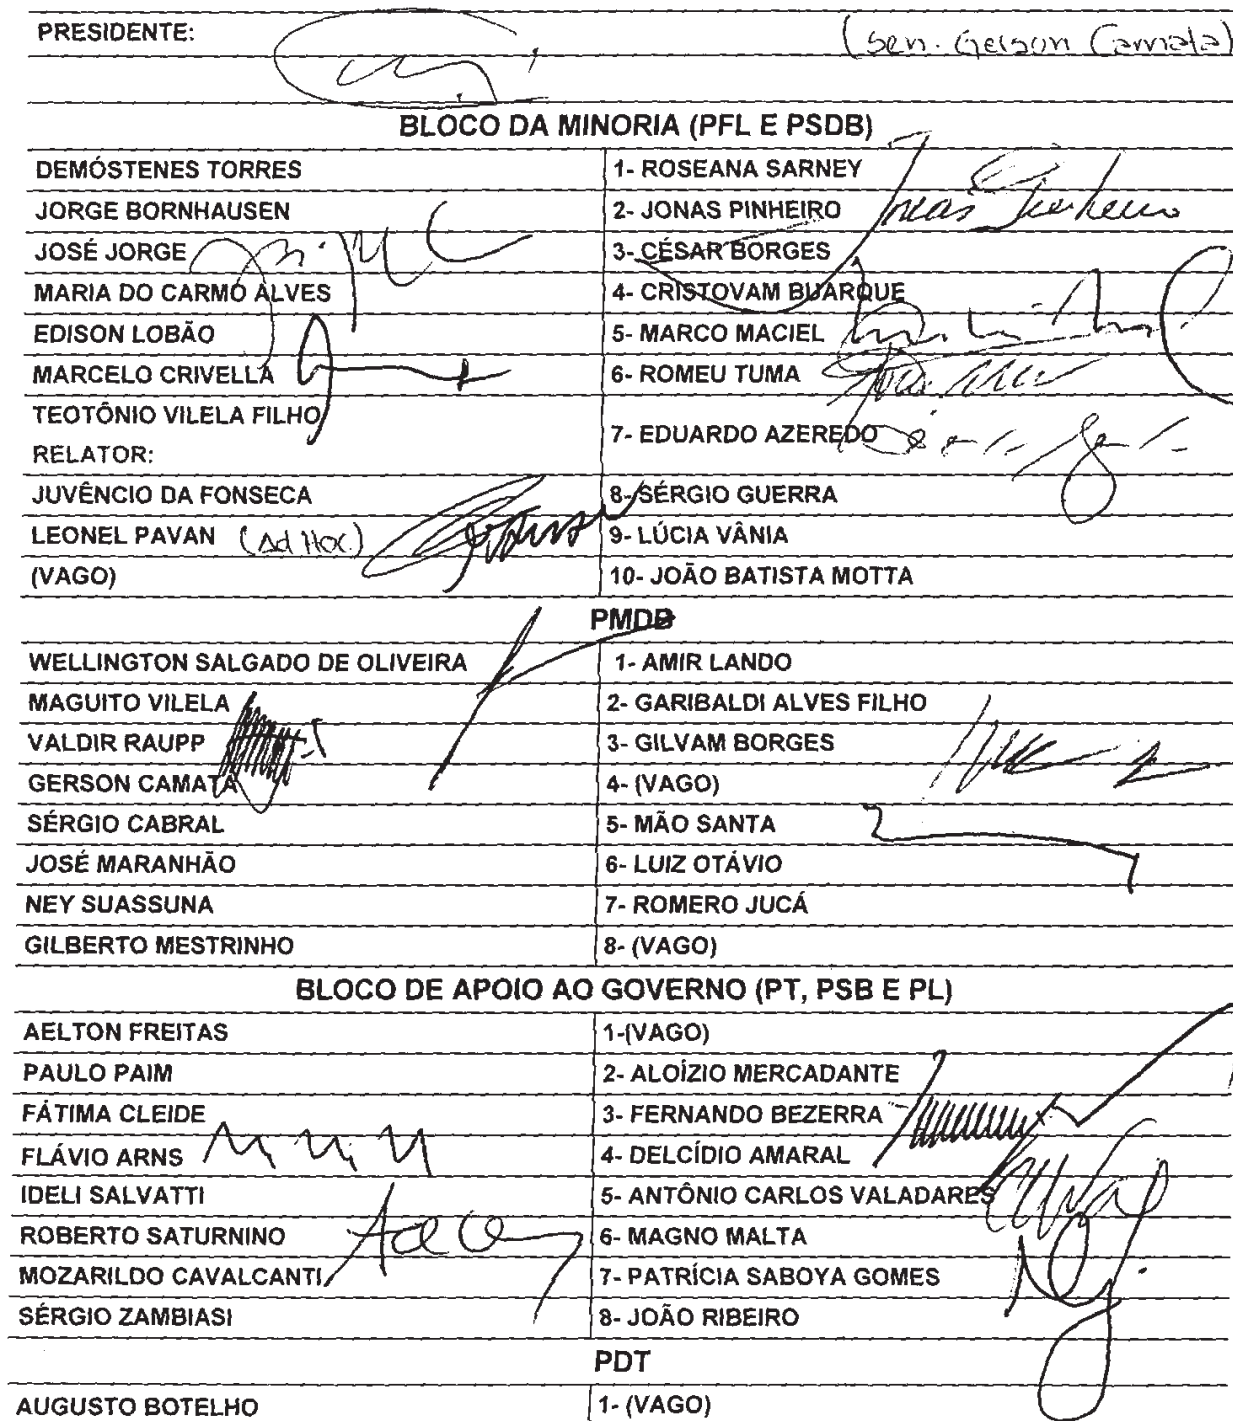 PRESIDENTE: (Sen. Gerson Camata)
BLOCO DA MINORIA (PFL E PSDB)
DEMÓSTENES TORRES 1- ROSEANA SARNEY
JORGE BORNHAUSEN 2- JONAS PINHEIRO Jonas Pinheiro
JOSÉ JORGE 3- CÉSAR BORGES
MARIA DO CARMO ALVES 4- CRISTOVAM BUARQUE
EDISON LOBÃO 5- MARCO MACIEL
MARCELO CRIVELLA 6- ROMEU TUMA
TEOTÔNIO VILELA FILHO 7- EDUARDO AZEREDO
RELATOR:
JUVÊNCIO DA FONSECA 8- SÉRGIO GUERRA
LEONEL PAVAN (Ad Hoc) 9- LÚCIA VÂNIA
(VAGO) 10- JOÃO BATISTA MOTTA
PMDB
WELLINGTON SALGADO DE OLIVEIRA 1- AMIR LANDO
MAGUITO VILELA 2- GARIBALDI ALVES FILHO
VALDIR RAUPP 3- GILVAM BORGES
GERSON CAMATA 4- (VAGO)
SÉRGIO CABRAL 5- MÃO SANTA
JOSÉ MARANHÃO 6- LUIZ OTÁVIO
NEY SUASSUNA 7- ROMERO JUCÁ
GILBERTO MESTRINHO 8- (VAGO)
BLOCO DE APOIO AO GOVERNO (PT, PSB E PL)
AELTON FREITAS 1-(VAGO)
PAULO PAIM 2- ALOÍZIO MERCADANTE
FÁTIMA CLEIDE 3- FERNANDO BEZERRA
FLÁVIO ARNS 4- DELCÍDIO AMARAL
IDELI SALVATTI 5- ANTÔNIO CARLOS VALADARES
ROBERTO SATURNINO 6- MAGNO MALTA
MOZARILDO CAVALCANTI 7- PATRÍCIA SABOYA GOMES
SÉRGIO ZAMBIASI 8- JOÃO RIBEIRO
PDT
AUGUSTO BOTELHO 1- (VAGO)